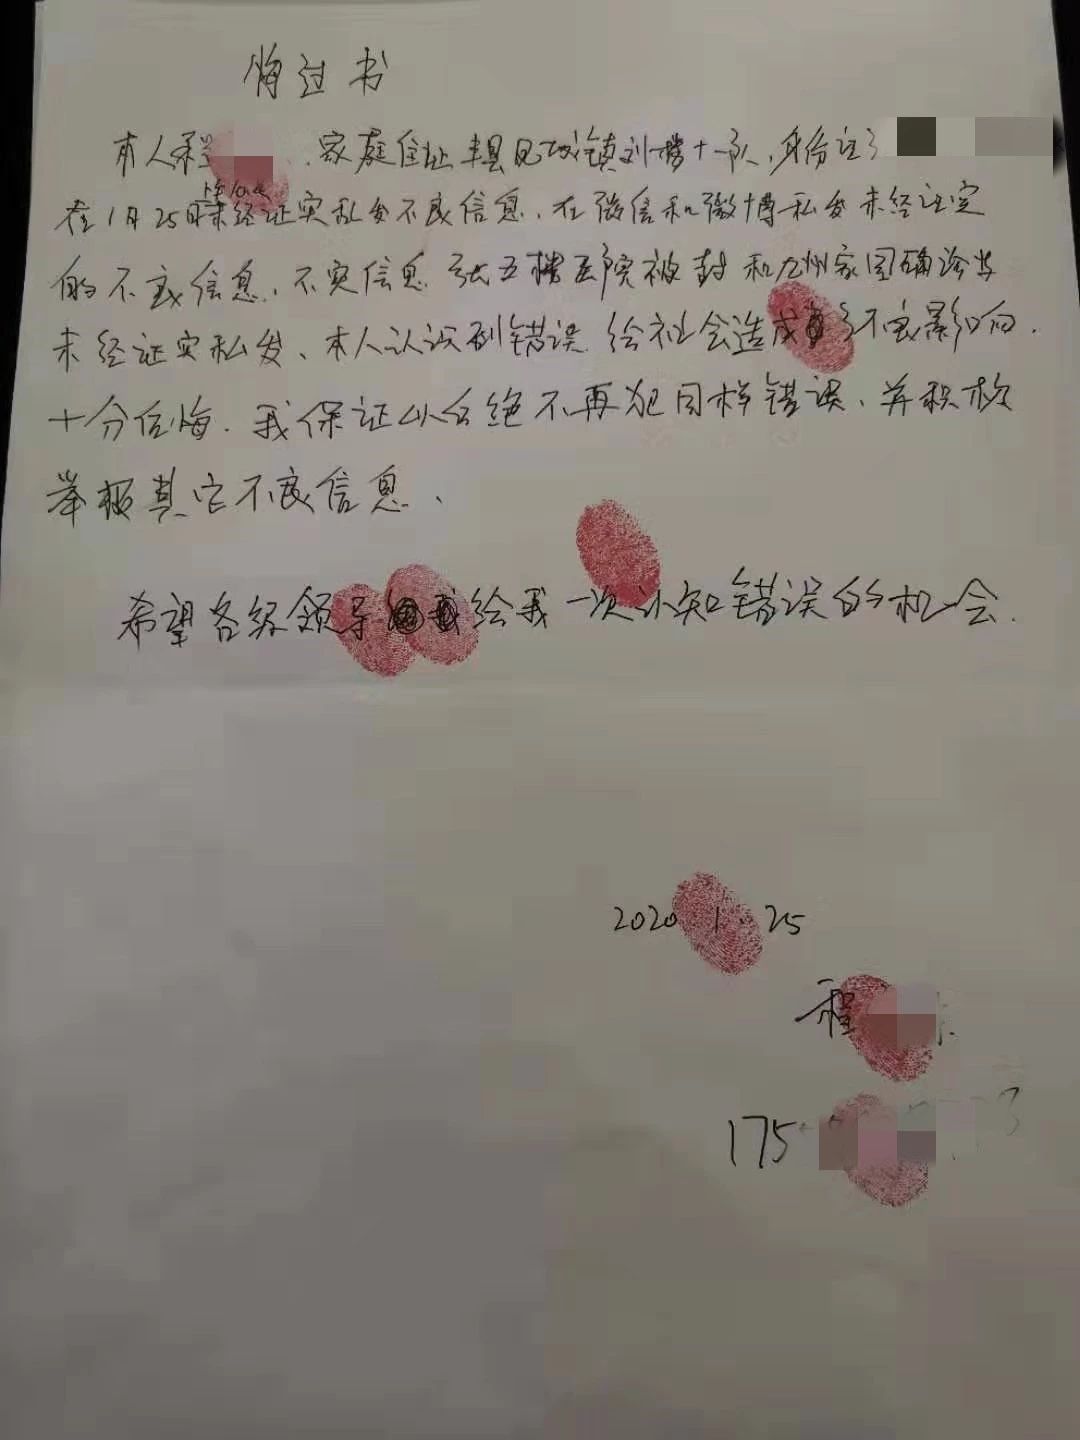 悔过书
本人程 、家庭住址丰县 城镇刘楼十一队,身份证
上午10点
在1月25日未经证实私发不良信息、在微信和微博私发未经证实
的不良信息、不实信息 张五楼医院被封和九州家园确诊
未经证实私发、本人认识到错误 给社会造成 不良影响.
十分后悔.我保证以后绝不再犯同样错误、并积极
举报其它不良信息、
希望各级领导 给我一次认知错误的机会.
2020 1.25
程
175